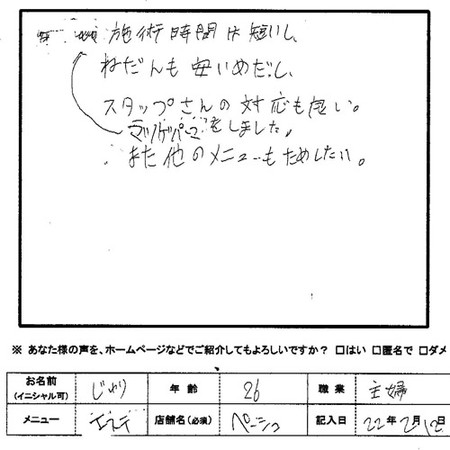 施術時間は短いし、
ねだんも安いめだし、
スタップさんの対応も良い。
マツゲパーマをしました。
また他のメニューもためしたい。
※ あなた様の声を、ホームページなどでご紹介してもよろしいですか？ □はい □匿名で □ダメ
お名前 (イニシャル可) じゅり 年齢 26 職業 主婦
メニュー エステ 店舗名(必須) 記入日 22年2月12日